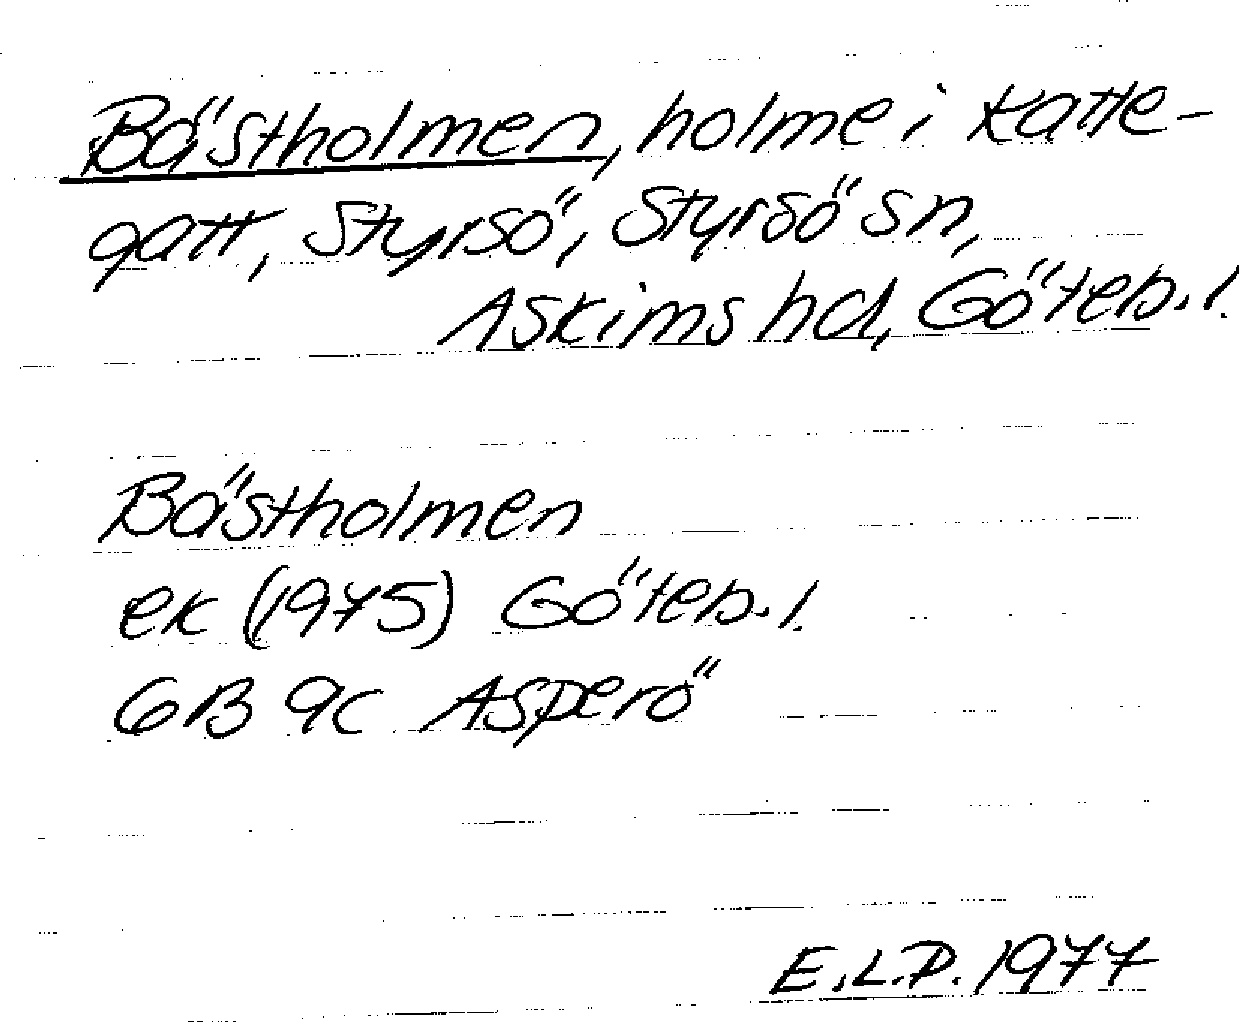 Bästholmen, holme i Katte-
gatt, Styrsö, Styrsö sn,
Askims hd, Göteb. l.
Bästholmen
ek (1975) Göteb. l.
6B 9c Asperö
E.L.P. 1977